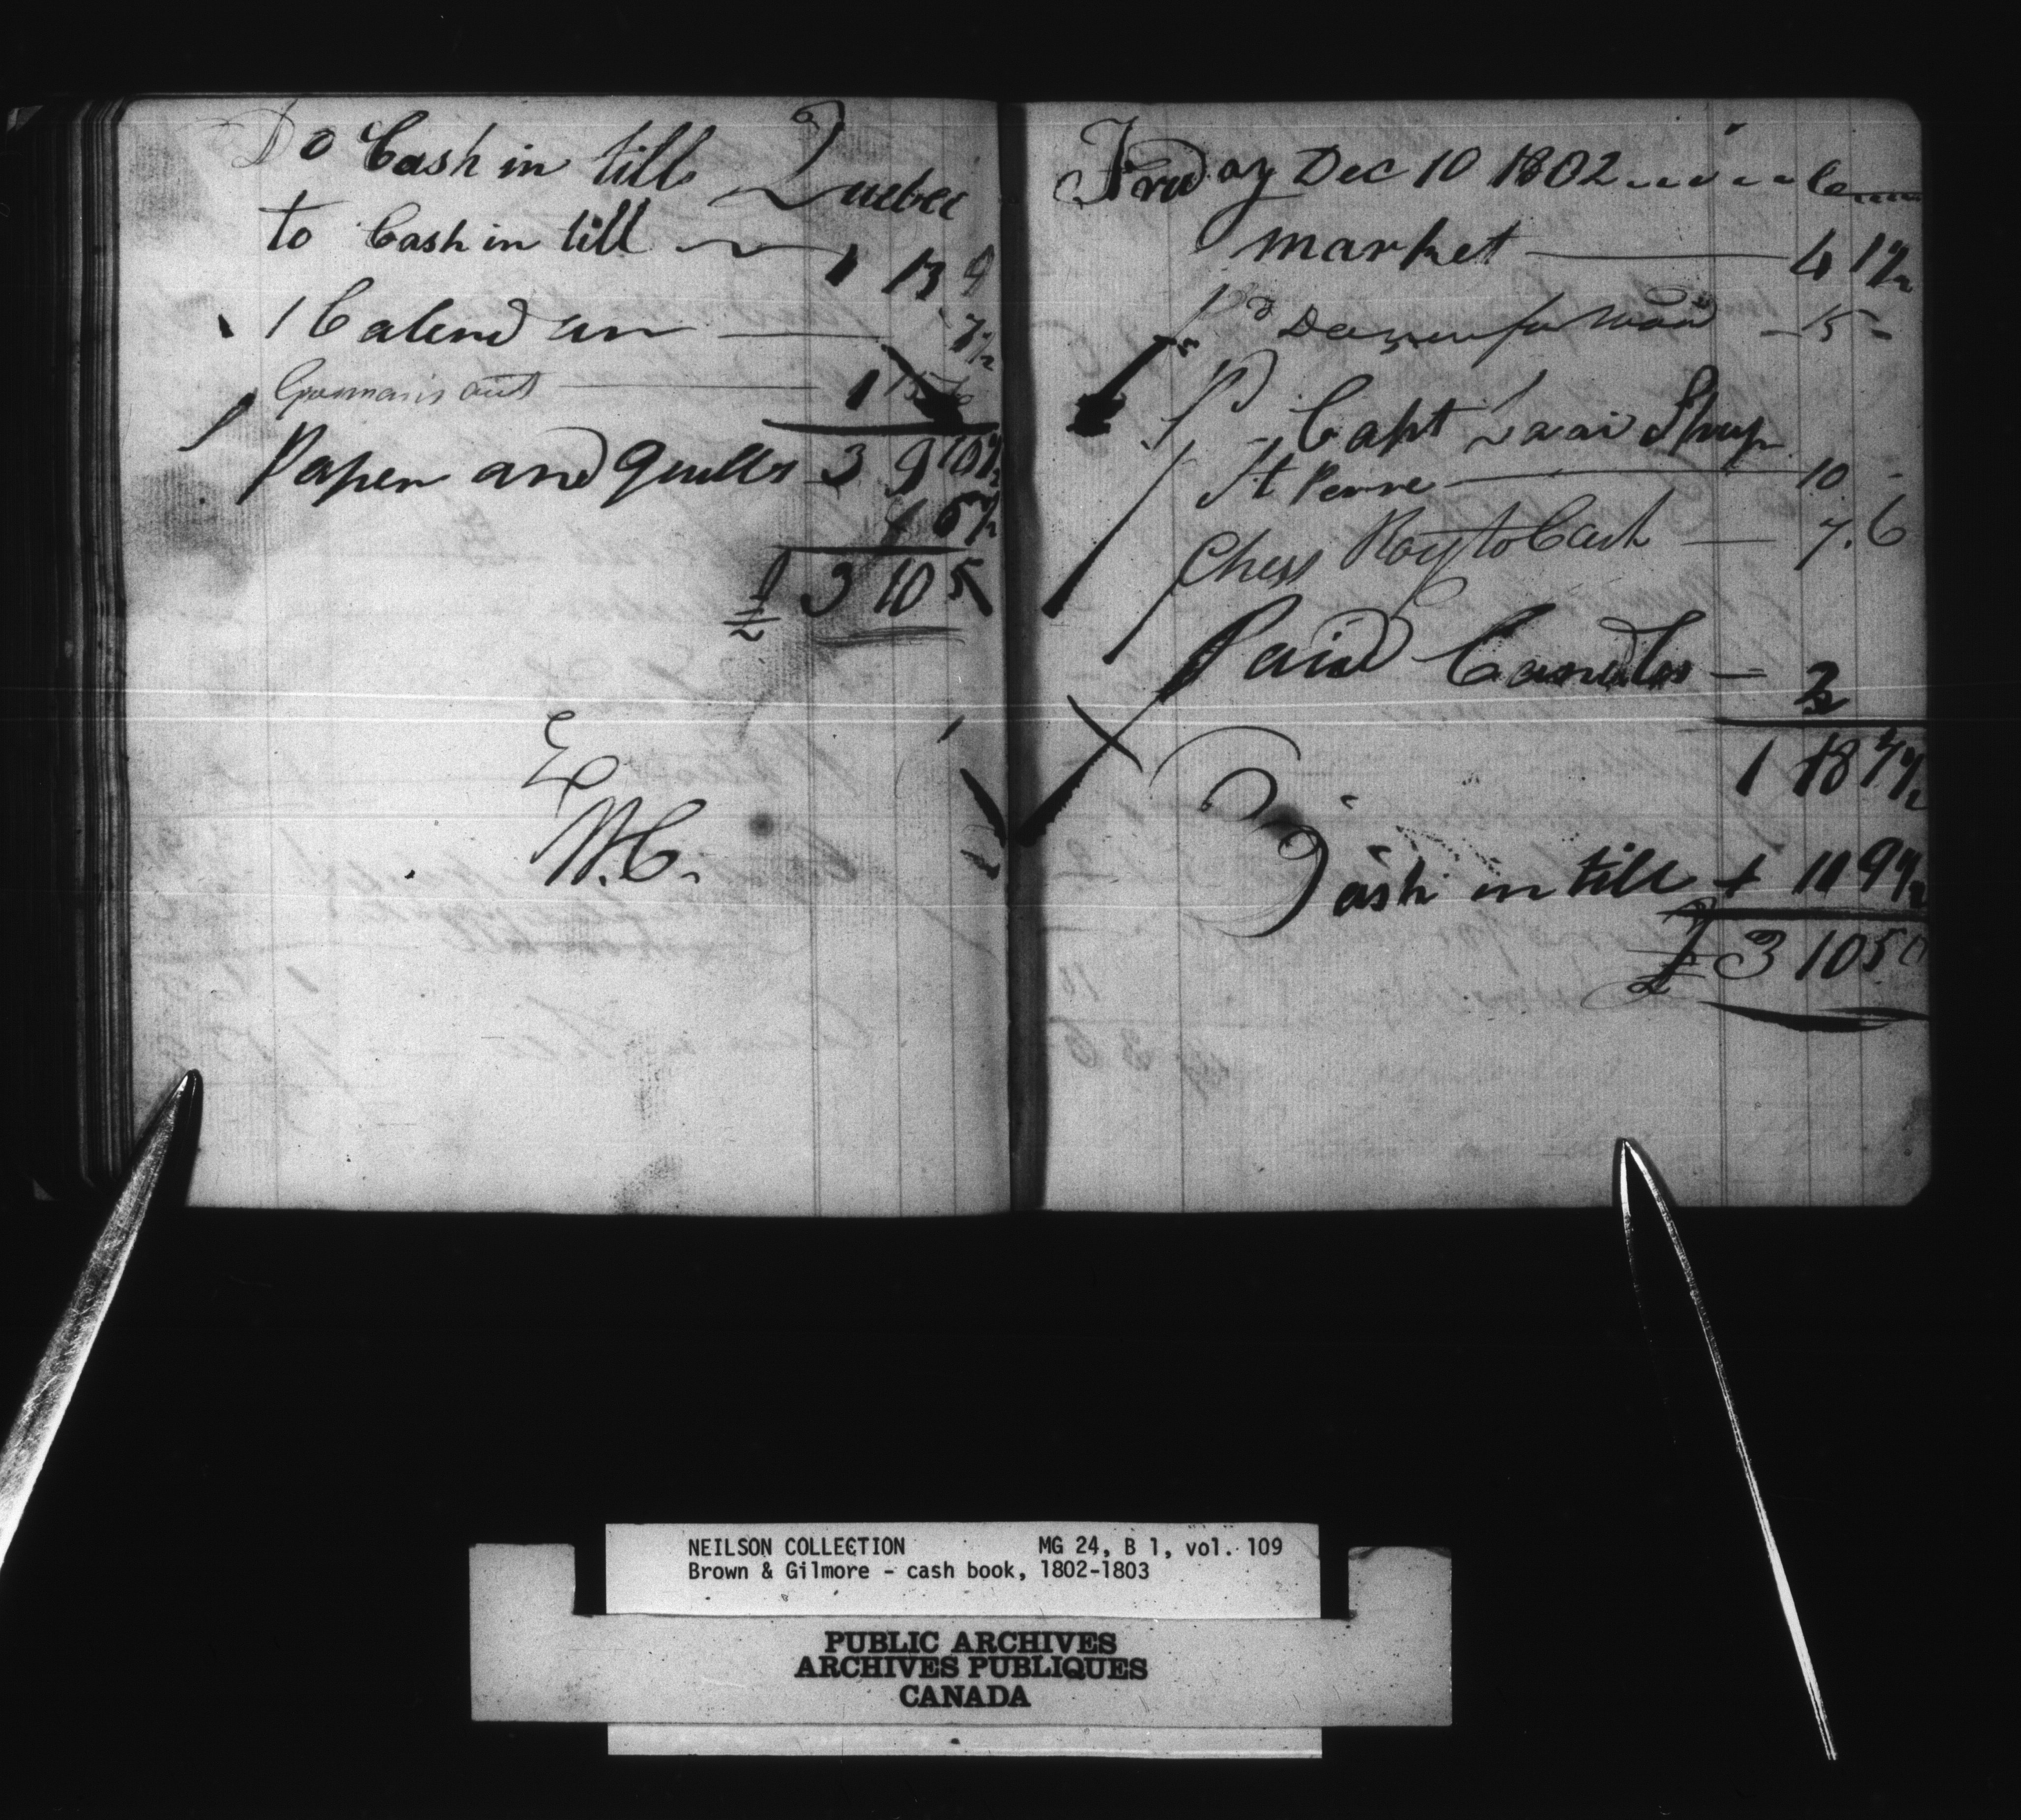 Do Cash in till Quebec
to Cash in till 1 13 9
1 Calendar 7½
Germain's acct 1 15 6
Paper and Quills 3 9 10½
6½
£ 3 10 5
W.C.
Friday Dec 10 1802
market 4 1½
pd for wood 15 -
pd Capt
St Pierre 10 -
Chess Roy to Cash 7.6
Paid Candles 2
1 18 7½
Cash in till 1 11 9½
£ 3 10 5
NEILSON COLLECTION MG 24, B 1, vol. 109
Brown & Gilmore - cash book, 1802-1803
PUBLIC ARCHIVES
ARCHIVES PUBLIQUES
CANADA